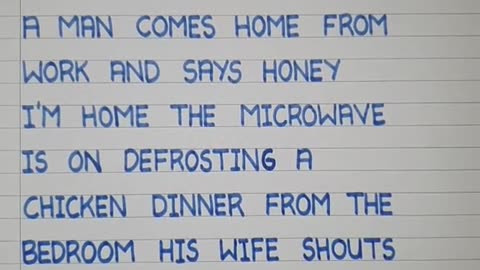 A MAN COMES HOME FROM
WORK AND SAYS HONEY
I'M HOME THE MICROWAVE
IS ON DEFROSTING A
CHICKEN DINNER FROM THE
BEDROOM HIS WIFE SHOUTS